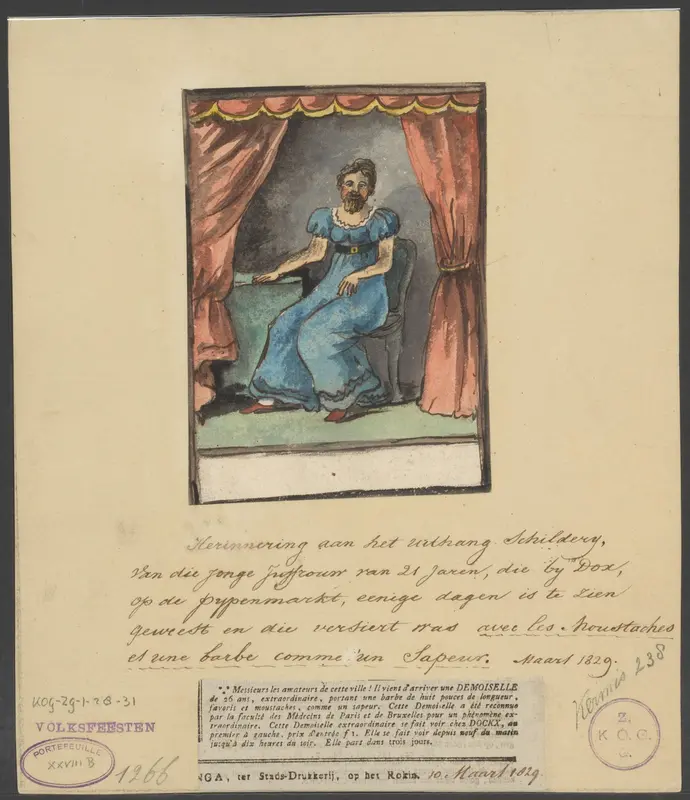 Herinnering aan het uithang Schildery,
van die jonge Juffrouw van 21 Jaren, die by Dox,
op de pypenmarkt, eenige dagen is te zien
geweest en die versiert was avec les Moustaches
et une barbe comme un Sapeur. Maart 1829.
Kermis 238
⁂ Messieurs les amateurs de cette ville! Il vient d'arriver une DEMOISELLE
de 26 ans, extraordinaire, portant une barbe de huit pouces de longueur,
favoris et moustaches, comme un sapeur. Cette Demoiselle a été reconnue
par la faculté des Médecins de Paris et de Bruxelles pour un phénomène ex-
traordinaire. Cette Demoiselle extraordinaire se fait voir chez DOCKX, au
premier à gauche, prix d'entrée f 1. Elle se fait voir depuis neuf du matin
jusqu'à dix heures du soir. Elle part dans trois jours.
NGA, ter Stads-Drukkerij, op het Rokin. 10 Maart 1829.
KOG-29-1-28-31
VOLKSFEESTEN
PORTEFEUILLE
XXVIII B
1266
Z.
K.O.G.
G.